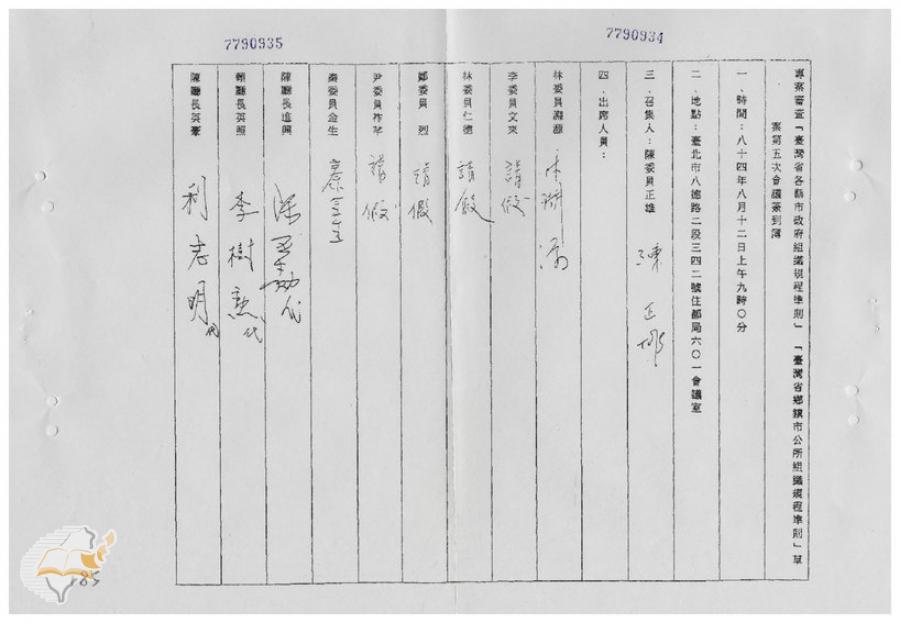 7790934
7790935
專案審查「臺灣省各縣市政府組織規程準則」「臺灣省鄉鎮市公所組織規程準則」草
案第五次會議簽到簿
一、時間：八十四年八月十二日上午九時〇分
二、地點：臺北市八德路二段三四二號住都局六〇一會議室
三、召集人：陳委員正雄
四、出席人員：
林委員淵源
李委員文來 請假
林委員仁德 請假
鄭委員 烈 請假
尹委員祚芊 請假
秦委員金生 秦金生
陳廳長進興 代
賴廳長英照 李樹勳代
陳廳長英豪 利志明代
85